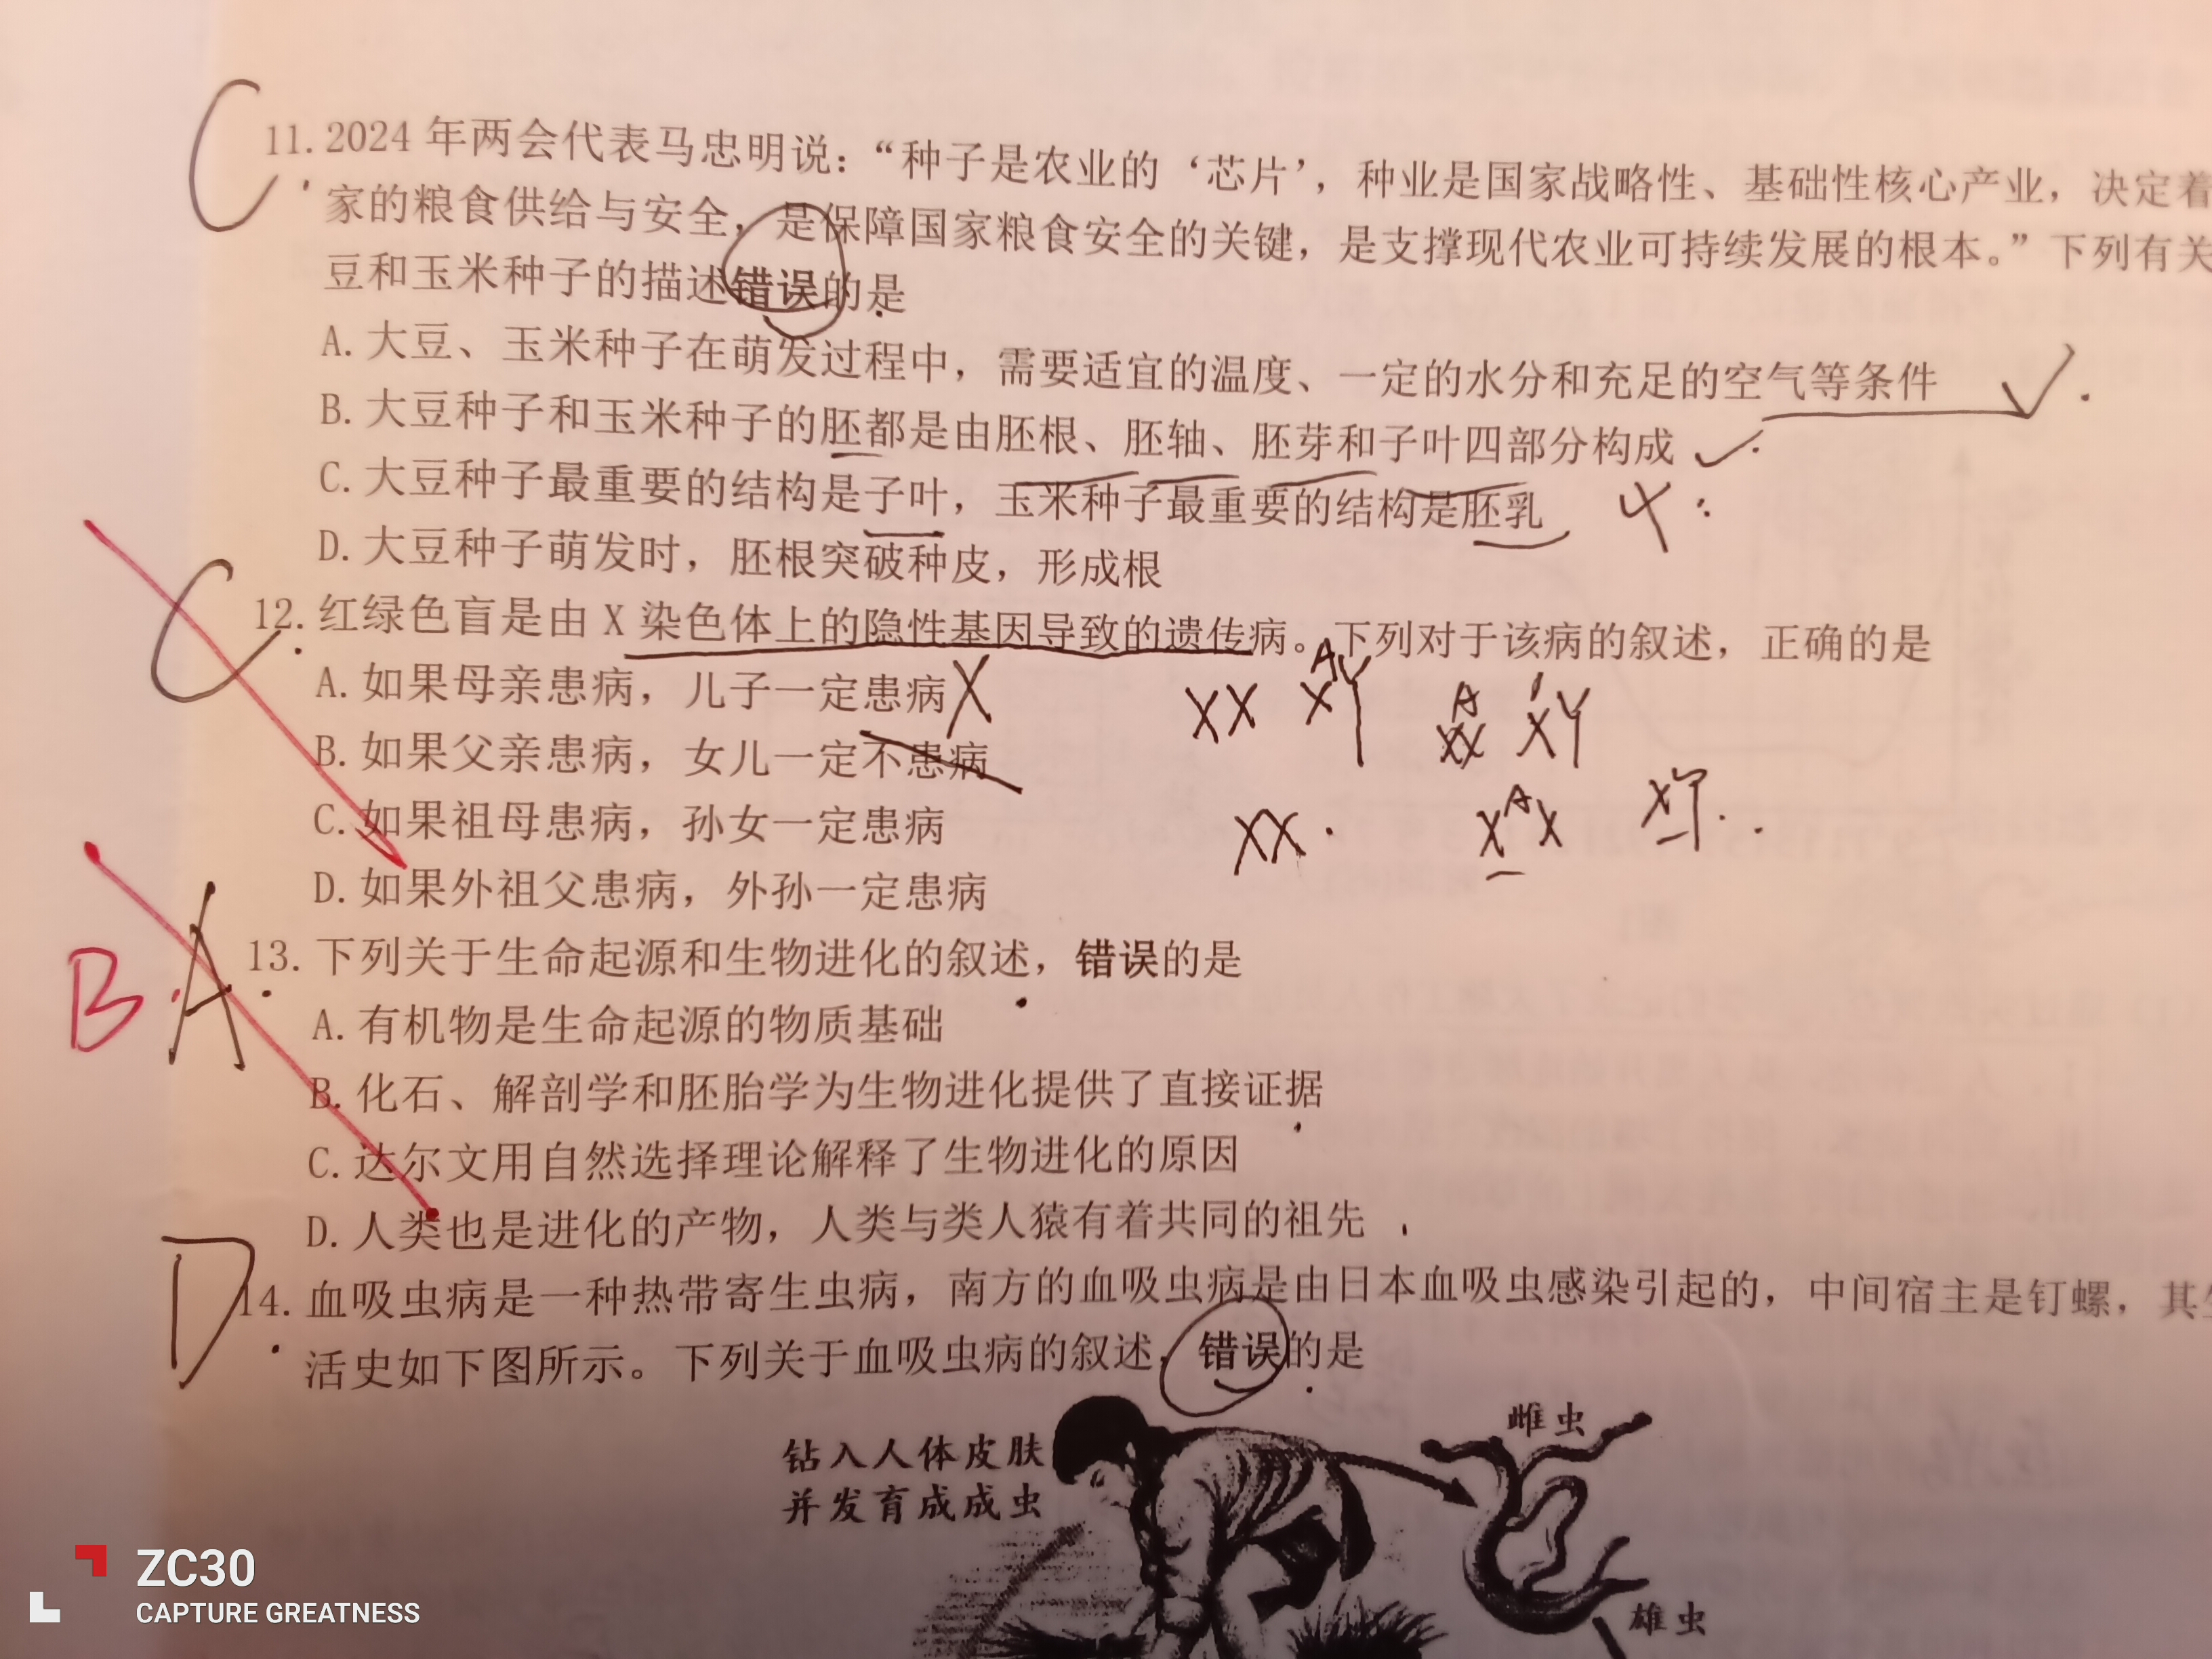 C
11. 2024 年两会代表马忠明说：“种子是农业的‘芯片’，种业是国家战略性、基础性核心产业，决定着
家的粮食供给与安全，是保障国家粮食安全的关键，是支撑现代农业可持续发展的根本。”下列有关
豆和玉米种子的描述错误的是
A. 大豆、玉米种子在萌发过程中，需要适宜的温度、一定的水分和充足的空气等条件 ✓
B. 大豆种子和玉米种子的胚都是由胚根、胚轴、胚芽和子叶四部分构成 ✓
C. 大豆种子最重要的结构是子叶，玉米种子最重要的结构是胚乳 ×
D. 大豆种子萌发时，胚根突破种皮，形成根
C
12. 红绿色盲是由 X 染色体上的隐性基因导致的遗传病。下列对于该病的叙述，正确的是
A. 如果母亲患病，儿子一定患病 X
XX XᴬY XᴬX XY
B. 如果父亲患病，女儿一定不患病
C. 如果祖母患病，孙女一定患病
XX XᴬX XY
D. 如果外祖父患病，外孙一定患病
B A
13. 下列关于生命起源和生物进化的叙述，错误的是
A. 有机物是生命起源的物质基础
B. 化石、解剖学和胚胎学为生物进化提供了直接证据
C. 达尔文用自然选择理论解释了生物进化的原因
D. 人类也是进化的产物，人类与类人猿有着共同的祖先
D
14. 血吸虫病是一种热带寄生虫病，南方的血吸虫病是由日本血吸虫感染引起的，中间宿主是钉螺，其生
活史如下图所示。下列关于血吸虫病的叙述，错误的是
雌虫
钻入人体皮肤
并发育成成虫
雄虫
ZC30
CAPTURE GREATNESS